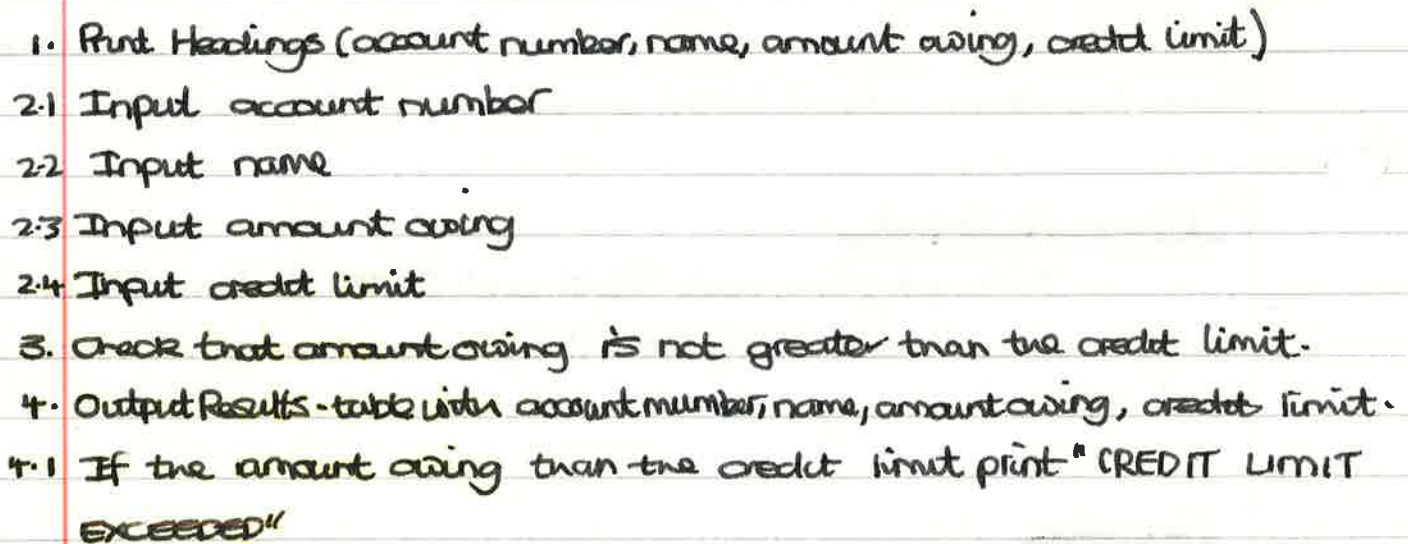 1. Print Headings (account number, name, amount owing, credit limit)
2.1 Input account number
2.2 Input name
2.3 Input amount owing
2.4 Input credit limit
3. Check that amount owing is not greater than the credit limit.
4. Output Results - table with account number, name, amount owing, credit limit.
4.1 If the amount owing than the credit limit print "CREDIT LIMIT
EXCEEDED"